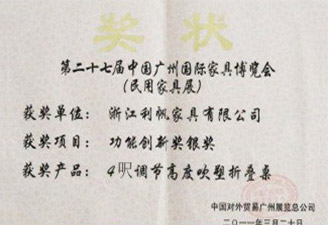 奖状
第二十七届中国广州国际家具博览会
(民用家具展)
获奖单位：浙江利帆家具有限公司
获奖项目：功能创新奖银奖
获奖产品：4呎调节高度吹塑折叠桌
中国对外贸易广州展览总公司
二〇一一年三月二十日